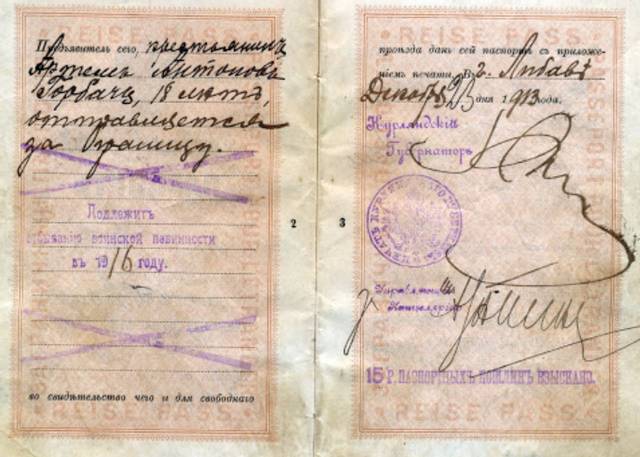 REISE PASS
Предъявитель сего, крестьянинъ
Артемъ Антоновъ
Горбачъ, 18 лѣтъ,
отправляется
за границу.
Подлежитъ
воинской повинности
въ 1916 году.
во свидѣтельство чего и для свободнаго
2
3
REISE PASS
проѣзда данъ сей паспортъ съ приложе-
ніемъ печати. В г. Либавѣ
Декабр 23 дня 1913 года.
Курляндскій
Губернаторъ
Управляющій
Канцеляріею
15 Р. ПАСПОРТНЫХЪ ПОШЛИНЪ ВЗЫСКАНЫ.
REISE PASS